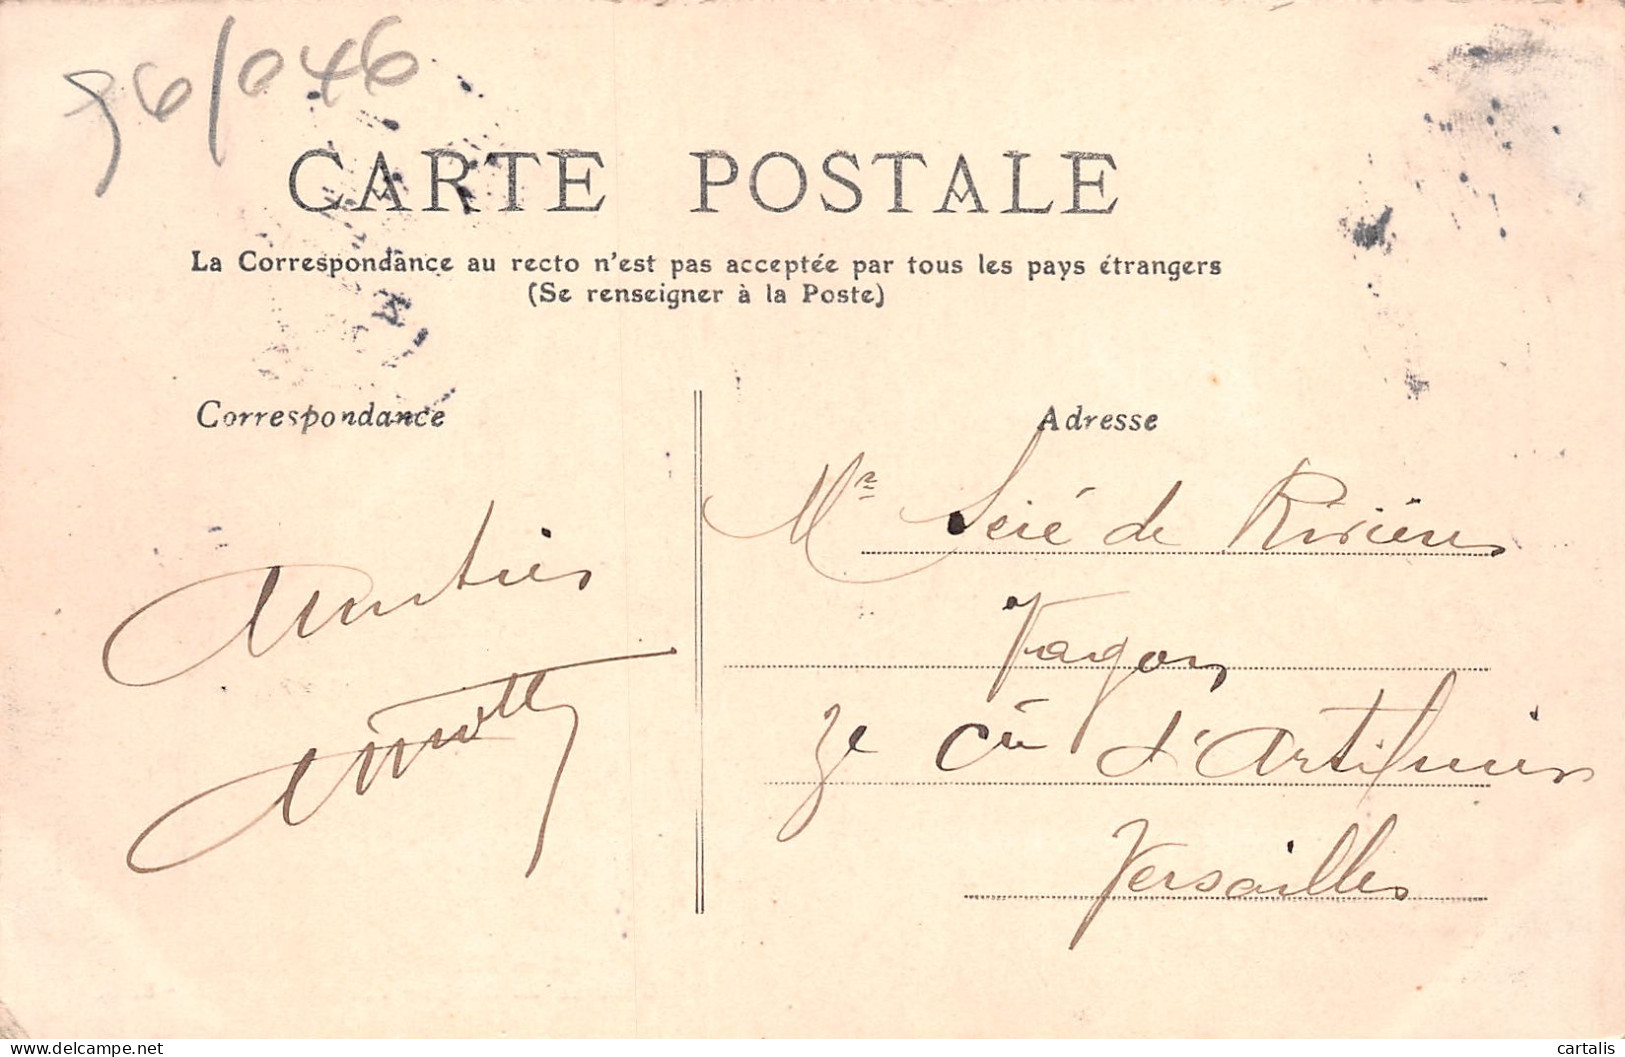 96/046
CARTE POSTALE
La Correspondance au recto n'est pas acceptée par tous les pays étrangers
(Se renseigner à la Poste)
Correspondance
Adresse
Mr Seré de Rivières
Amitiés
Vagon
7e d'Artillerie
Versailles
www.delcampe.net
cartalis